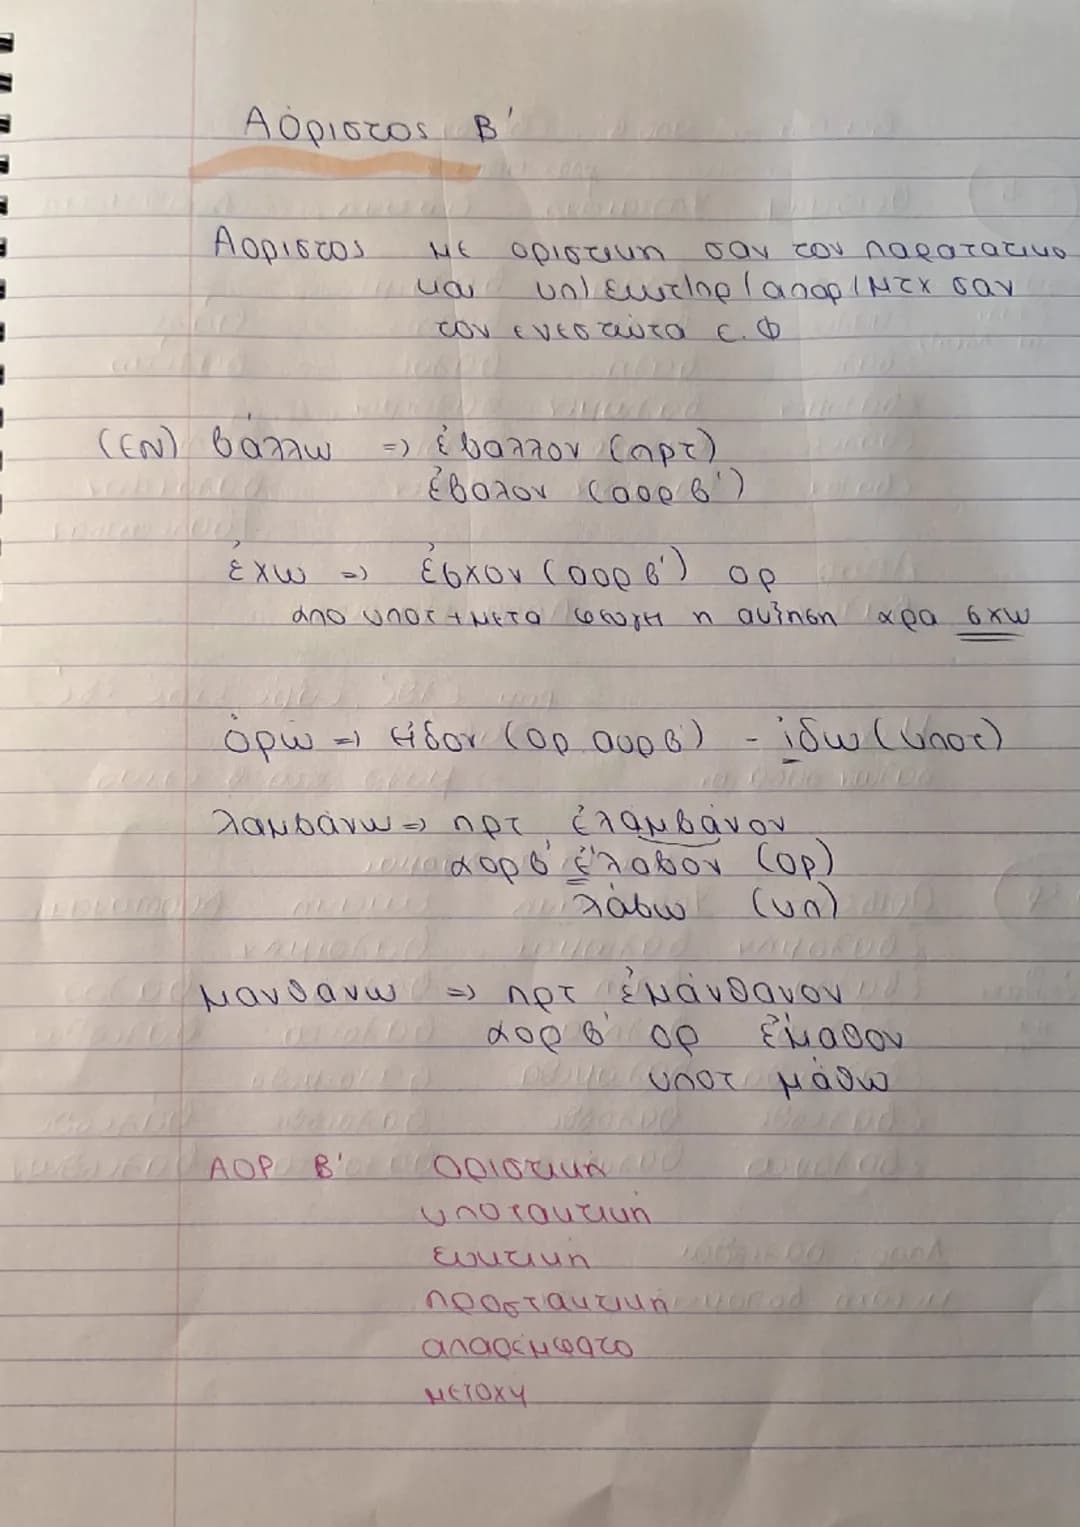 Αόριστος Β'
Αοριστος με οριστικη σαν τον παρατατικο
και υπ/ευκτ/πρ/απαρ/μτχ σαν
τον ενεστώτα ε.φ
(ΕΝ) βάλλω => έβαλλον (πρτ)
έβαλον (αορ β')
ἐχω => ἐσχον (αορ β') ορ
απο υποτ + μετα φευγει η αυξηση αρα σχω
ὁρώ => είδον (ορ αορ β') - ἰδω (υποτ)
λαμβάνω => πρτ ἐλάμβάνον
αορ β' ἐλαβον (ορ)
λάβω (υπ)
μανθανω => πρτ ἐμάνθανον
αορ β' ορ ἐμαθον
υποτ μάθω
ΑΟΡ Β' Οριστική
υποτακτική
ευκτική
προστακτική
απαρέμφατο
μετοχη